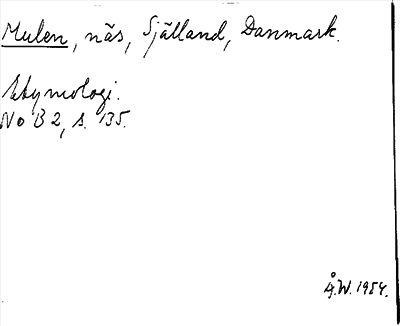 Mulen, näs, Själland, Danmark.
Etymologi.
NoB 2, s. 135.
Å.W. 1954.